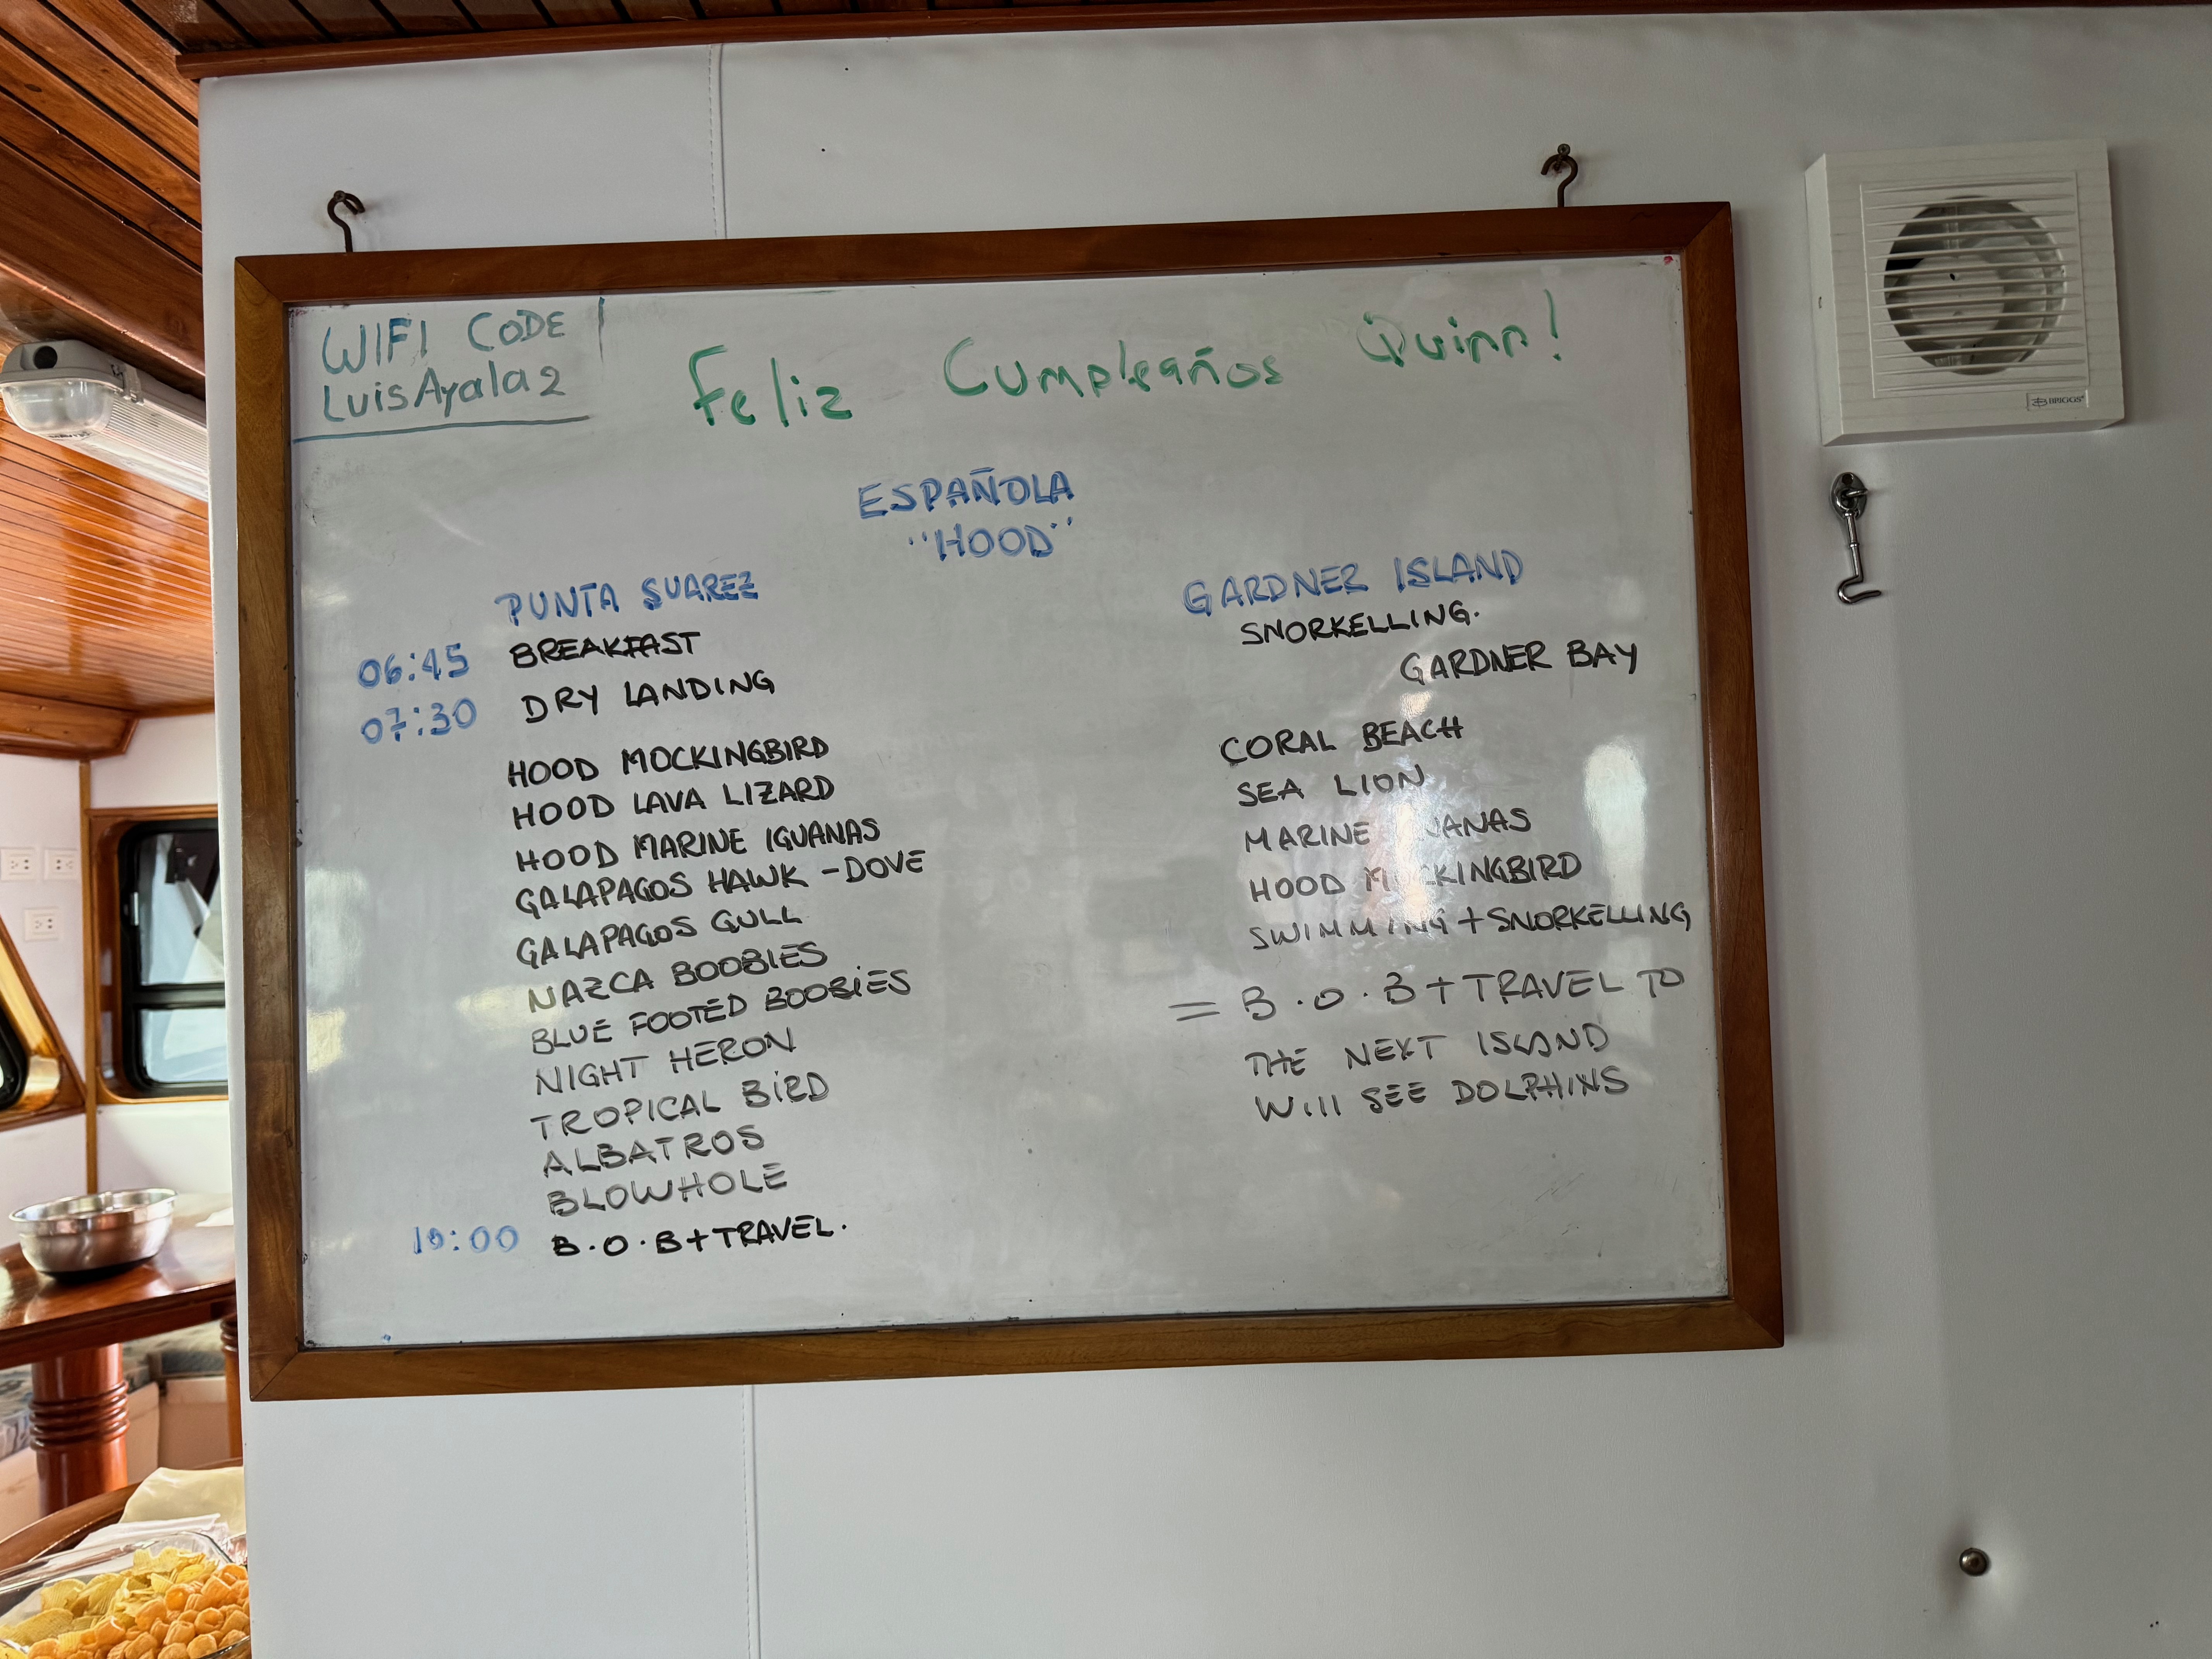 WIFI CODE
LuisAyala2
Feliz Cumpleaños Quinn!
ESPAÑOLA
"HOOD"
PUNTA SUAREZ
06:45 BREAKFAST
07:30 DRY LANDING
HOOD MOCKINGBIRD
HOOD LAVA LIZARD
HOOD MARINE IGUANAS
GALAPAGOS HAWK - DOVE
GALAPAGOS GULL
NAZCA BOOBIES
BLUE FOOTED BOOBIES
NIGHT HERON
TROPICAL BIRD
ALBATROS
BLOWHOLE
B.O.B + TRAVEL.
GARDNER ISLAND
SNORKELLING.
GARDNER BAY
CORAL BEACH
SEA LION
MARINE
HOOD MOCKINGBIRD
SWIMMING + SNORKELLING
= B.O.B + TRAVEL TO
THE NEXT ISLAND
Will SEE DOLPHINS
BRIGGS